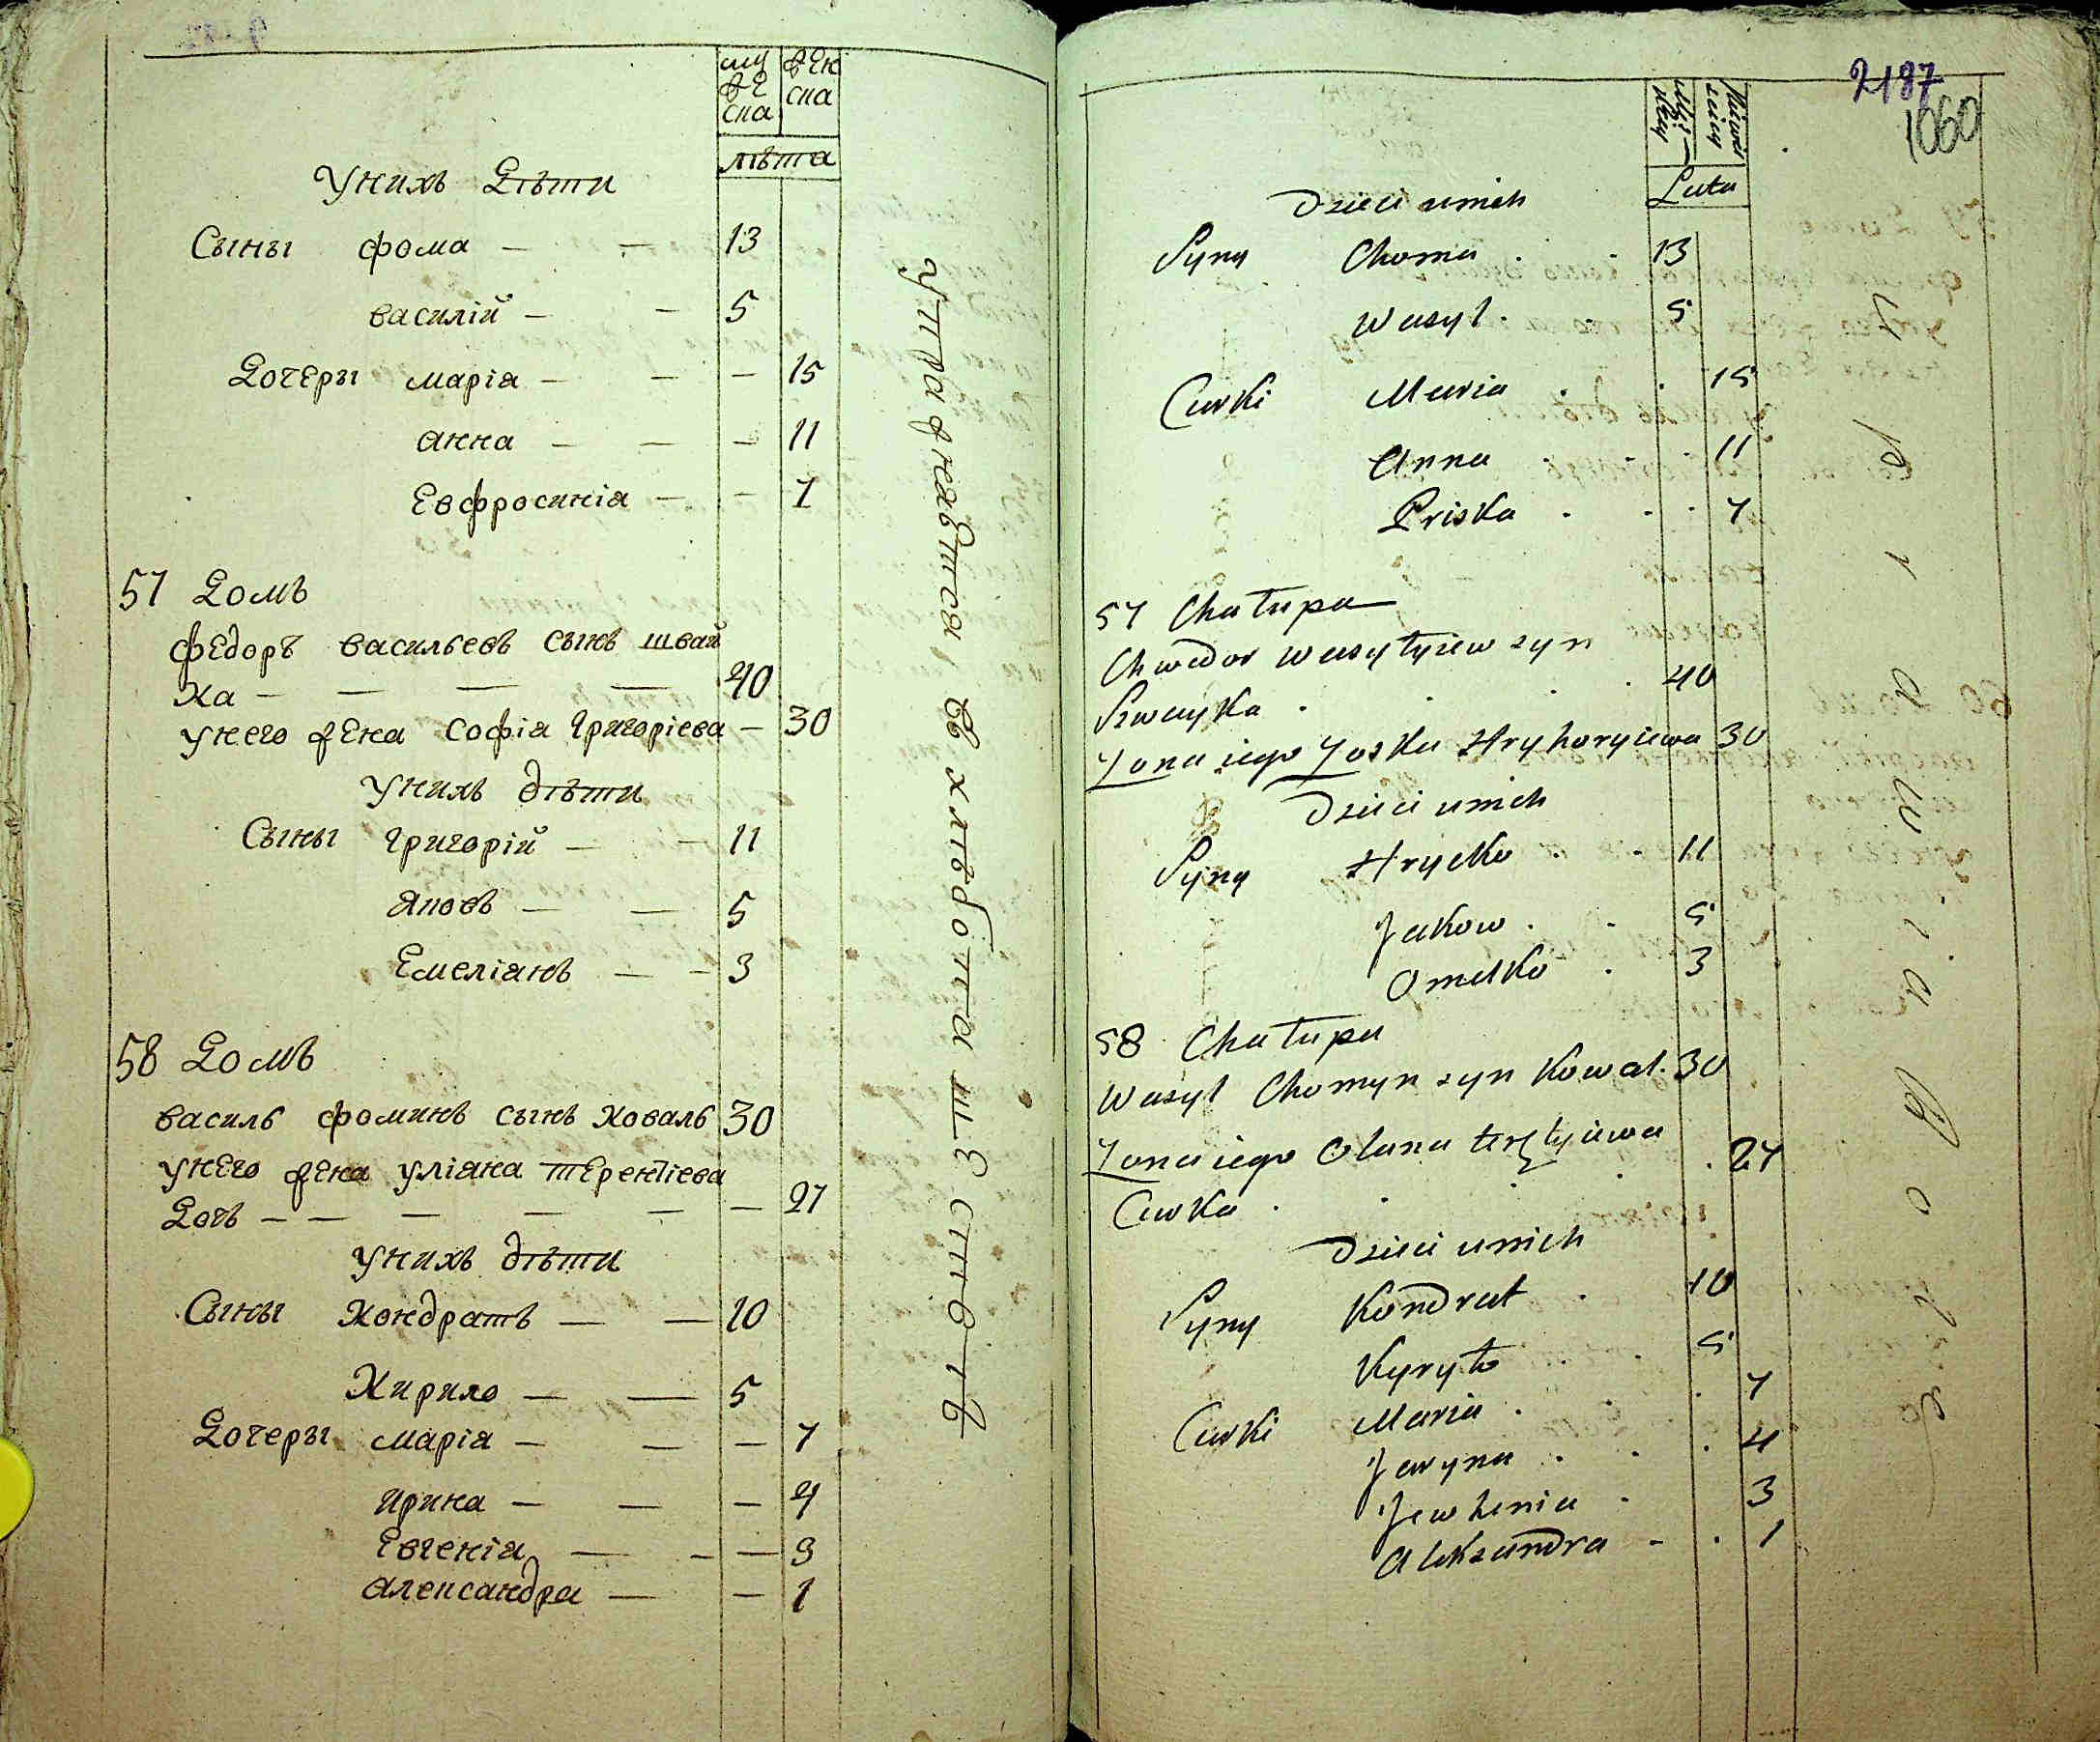 муж
жe
ска
жен
ска
лѣта
У нихъ Дѣти
Сыны Фома — — 13
Василій — — 5
Дочеры Марія — — — 15
Анна — — — 11
Евфросинія — — 7
57 Домъ
Федоръ Васильевъ сынъ Швай
ка — — — — 40
У него жена Софія Григоріева — 30
У нихъ дѣти
Сыны Григорій — — 11
Яковъ — — 5
Емеліанъ — — 3
58 Домъ
Василь Фоминъ сынъ Коваль 30
У него жена Уліана Терентіева
Дочь — — — — — — 27
У нихъ дѣти
Сыны Кондратъ — — 10
Кирило — — 5
Дочеры Марія — — — 7
Ирина — — — 4
Евгенія — — — 3
Александра — — 1
Упражняется в хлѣбопашествѣ
2187
1060
Lata
Dzieci u nich
Syny Choma . . 13
Wasyl . . 5
Curki Maria . . 15
Anna . . . 11
Priska . . . 7
57 Chałupa
Chwedor Wasylyiew syn
Szwayka . . . 40
Zona iego Zoska Hryhoryiewa 30
Dzieci u nich
Syny Hrycko . . 11
Jakow . . 5
Omelko . 3
58 Chałupa
Wasyl Chomyn syn Kowal . 30
Zona iego Olana
Curka . . . . 27
Dzieci u nich
Syny Kondrat . 10
Kyryło . . 5
Curki Maria . . . 7
Jaryna . . . 4
Jewhenia . 3
Aleksandra - . 1